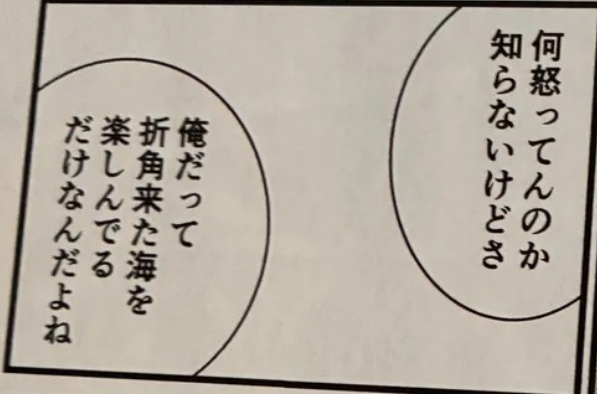 何怒ってんのか
知らないけどさ
俺だって
折角来た海を
楽しんでる
だけなんだよね